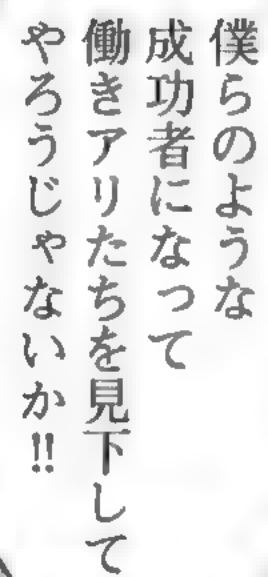 僕らのような
成功者になって
働きアリたちを見下して
やろうじゃないか!!